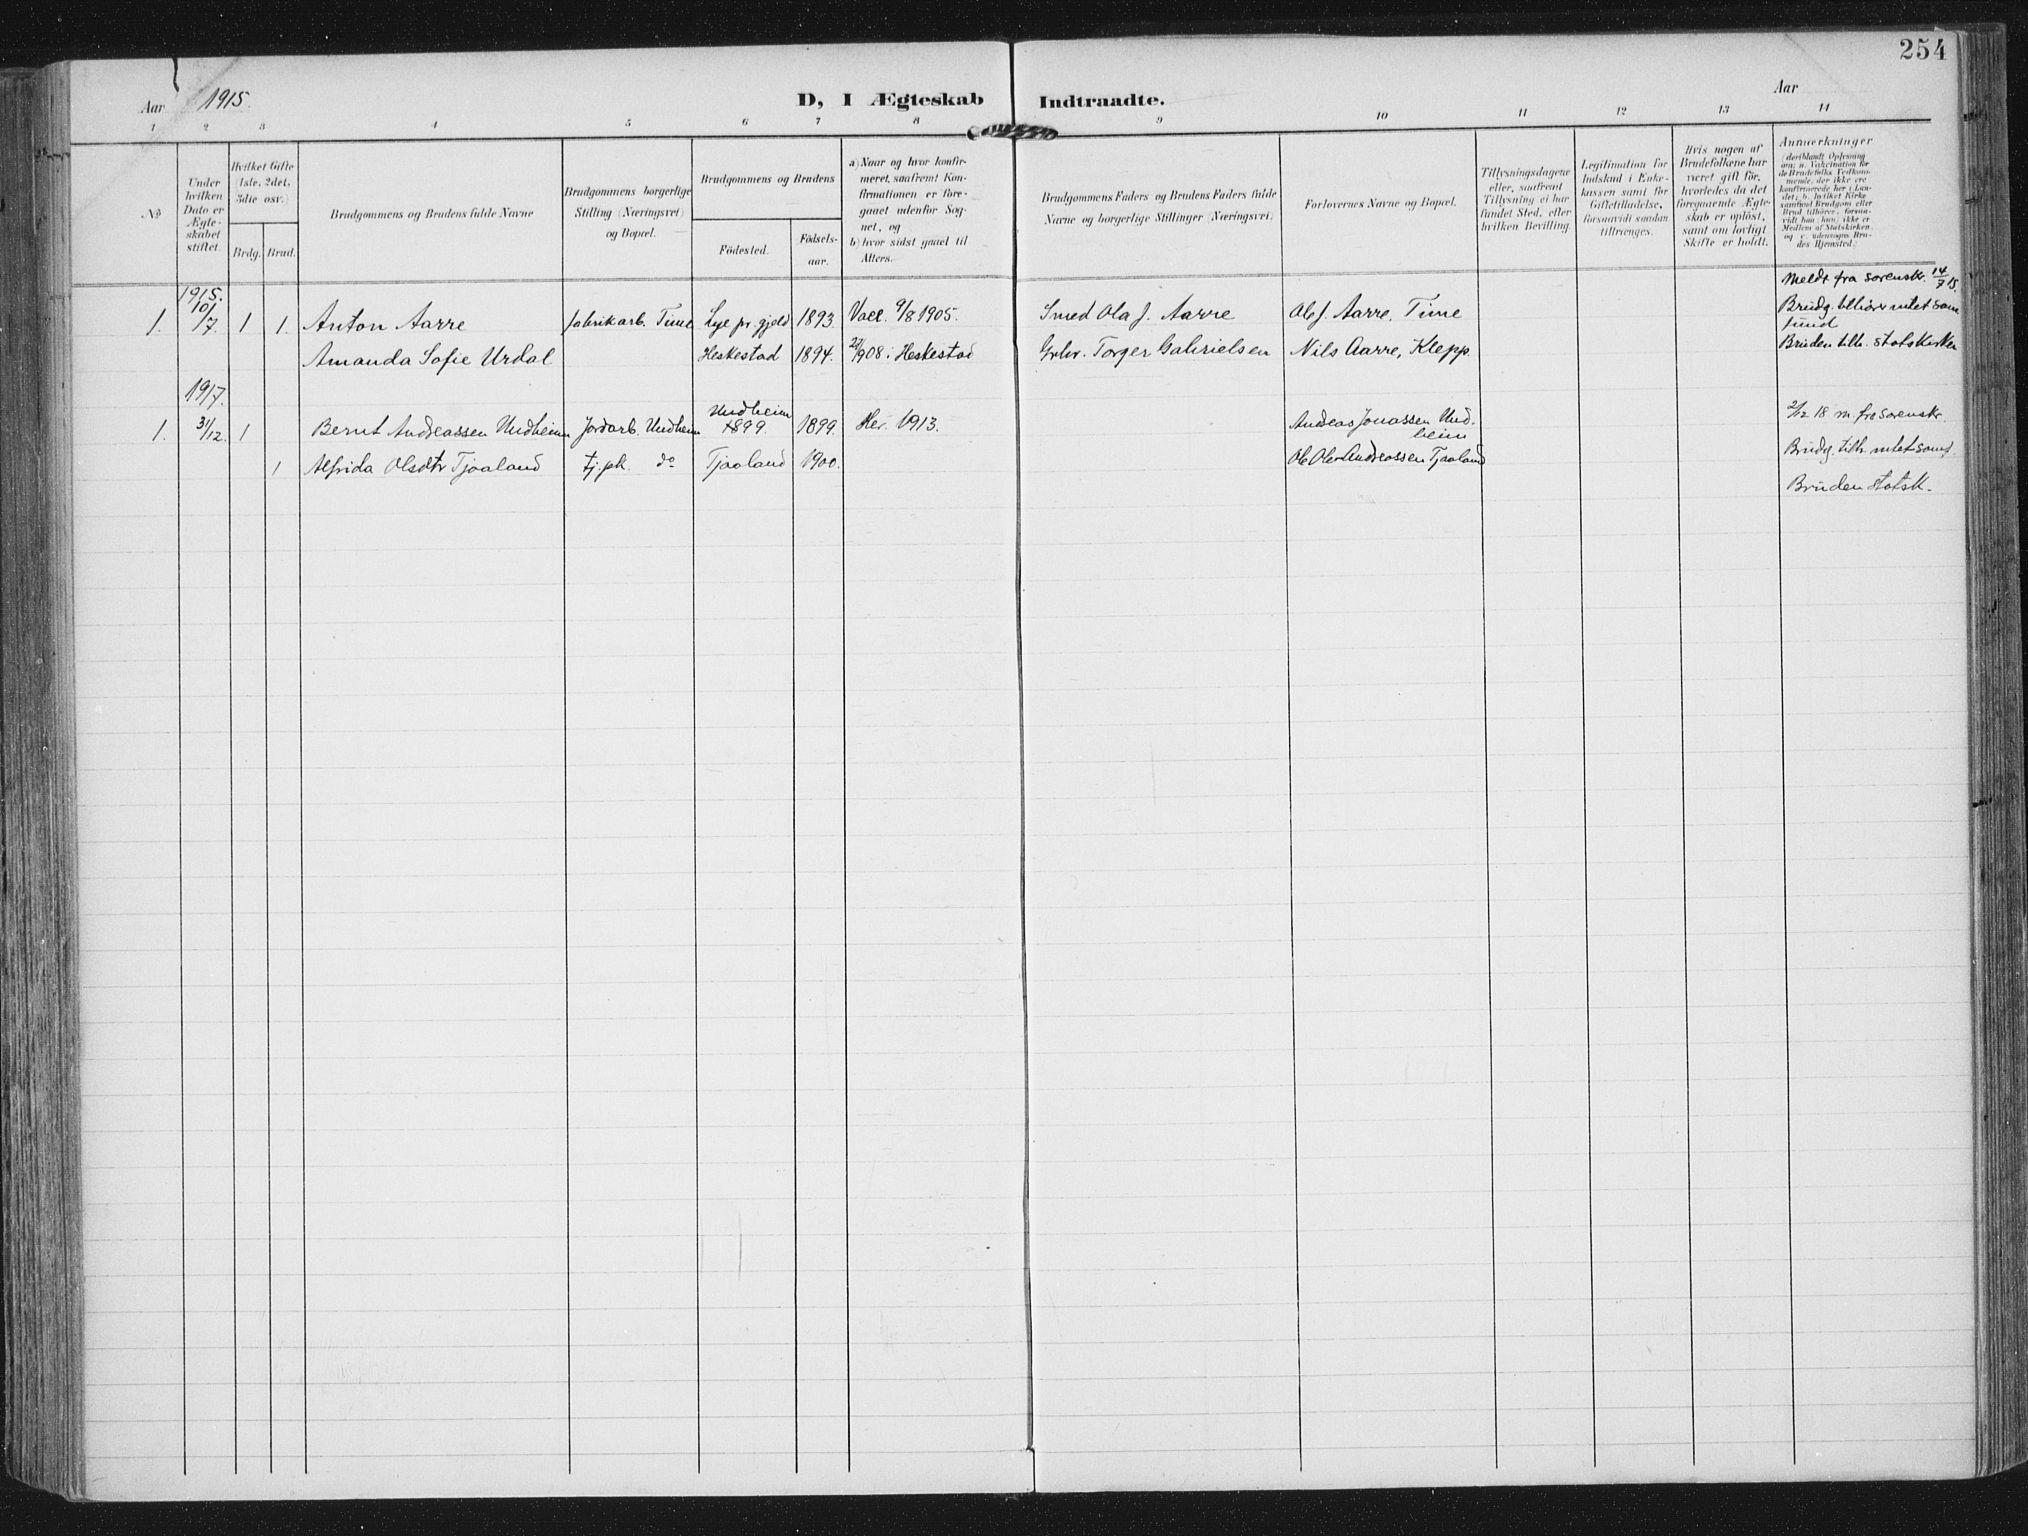 254
Aar 1915.
D, I Ægteskab Indtraadte.
Aar
1 2 3 4 5 6 7 8 9 10 11 12 13 14
No
Under hvilken Dato er Ægteskabet stiftet.
Hvilket Gifte (1ste, 2det, 3die osv.)
Brdg. Brud.
Brudgommens og Brudens fulde Navne
Brudgommens borgerlige Stilling (Næringsvei) og Bopæl.
Brudgommens og Brudens
Fødested.
Fødsels-aar.
a) Naar og hvor konfirmeret, saafremt Konfirmationen er foregaaet udenfor Sognet, og
b) hvor sidst gaaet til Alters.
Brudgommens Faders og Brudens Faders fulde Navne og borgerlige Stillinger (Næringsvei).
Forlovernes Navne og Bopæl.
Tillysningsdagene eller, saafremt Tillysning ei har fundet Sted, efter hvilken Bevilling.
Legitimation for Indskud i Enkekassen samt for Giftetilladelse, forsaavidt saadan tiltrænges.
Hvis nogen af Brudefolkene har været gift før, hvorledes da det foregaaende Ægteskab er opløst, samt om lovligt Skifte er holdt.
Anmærkninger
(deriblandt Oplysning om: a. Vakcination for de Brudefolks Vedkommende, der ikke ere konfirmerede her i Landet; b. hvilket Kirkesamfund Brudgom eller Brud tilhører, forsaavidt han (hun) ikke er Medlem af Statskirken, og c. udensogns Brudes Hjemsted.)
1915. Meldt fra sorenskr. 14/7 15.
1. 10/7 1 1. Anton Aarre fabrikarb. Time Lye pr.gjeld 1893. 9/8 1905. Smed Ola J. Aarre Ole J. Aarre, Time Brudg. tilhører intet samfund
Amanda Sofie Urdal Heskestad 1894. 1908 i Heskestad Torger Gabrielsen Nils Aarre, Klepp Bruden tilh. statskirken
1917.
1. 31/12. 1 Bernt Andreassen Undheim Jordarb. Undheim Undheim 1899. 1899. Her 1913. Andreas Jonassen Undheim 2/12 18 m. fra sorenskr.
1 Alfrida Olsdtr Tjaaland tj.pk. do Tjaaland 1900. Andreassen Tjaaland Brudg. tilh. intet samf.
Bruden statsk.